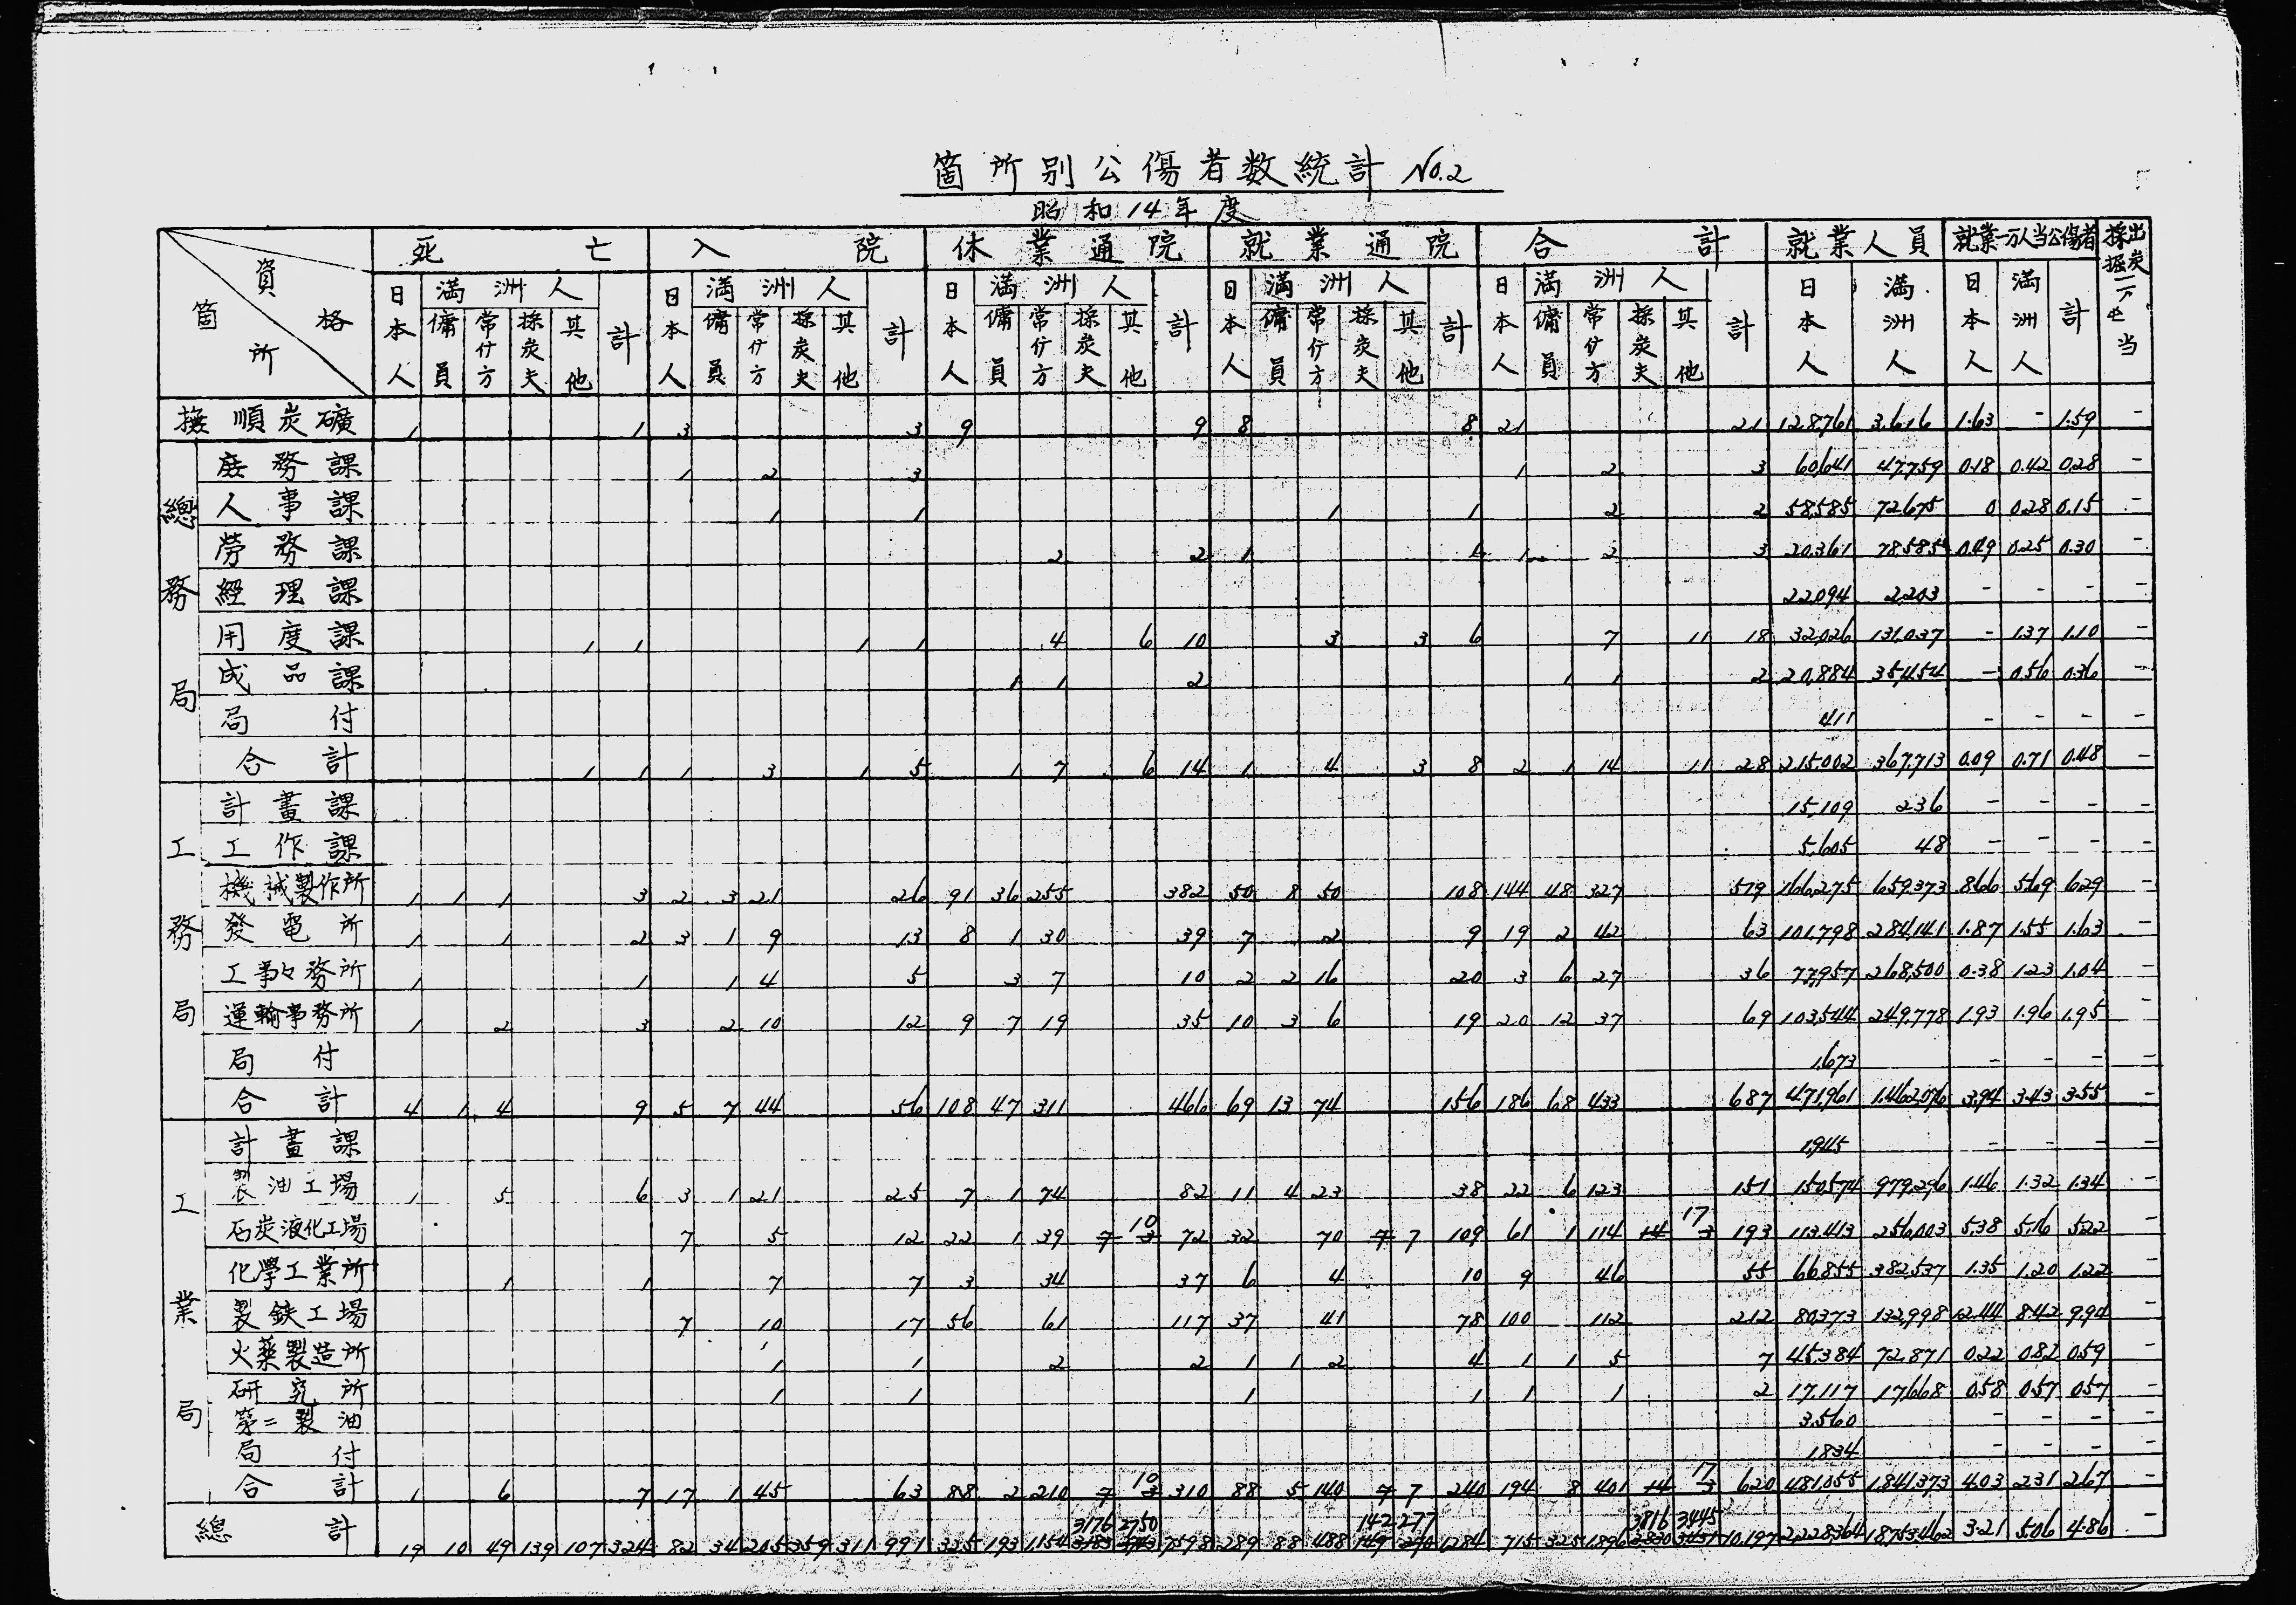 箇所別公傷者数統計 No.2
昭和14年度
資格 箇所 死亡 入院 休業通院 就業通院 合計 就業人員 就業一万人当公傷者 採掘出炭一万屯当
日本人 満洲人 計 日本人 満洲人 計 日本人 満洲人 計 日本人 満洲人 計 日本人 満洲人 計 日本人 満洲人 日本人 満洲人 計
傭員 常傭方 採炭夫 其他 傭員 常傭方 採炭夫 其他 傭員 常傭方 採炭夫 其他 傭員 常傭方 採炭夫 其他 傭員 常傭方 採炭夫 其他
撫順炭礦 1 1 3 3 9 9 8 8 21 21 128,761 3,616 1.63 - 1.59 -
總務局
庶務課 1 2 3 1 2 3 60,641 47,759 0.18 0.42 0.28 -
人事課 1 1 1 1 2 2 58,585 72,675 0 0.28 0.15 -
勞務課 2 2 1 1 1 2 3 20,361 78,585 0.49 0.25 0.30 -
經理課 22,094 2,203 - - - -
用度課 1 1 1 1 4 6 10 3 3 6 7 11 18 32,026 131,037 - 1.37 1.10 -
成品課 1 1 2 1 1 2 20,884 35,454 - 0.56 0.36 -
局付 411 - - - -
合計 1 1 1 3 1 5 1 7 6 14 1 4 3 8 2 1 14 11 28 215,002 367,713 0.09 0.71 0.48 -
工務局
計畫課 15,109 236 - - - -
工作課 5,605 48 - - - -
機械製作所 1 1 1 3 2 3 21 26 91 36 255 382 50 8 50 108 144 48 327 519 166,275 659,373 8.66 5.69 6.29 -
發電所 1 1 2 3 1 9 13 8 1 30 39 7 2 9 19 2 42 63 101,798 284,141 1.87 1.55 1.63 -
工事々務所 1 1 1 4 5 3 7 10 2 2 16 20 3 6 27 36 77,957 268,500 0.38 1.23 1.04 -
運輸事務所 1 2 3 2 10 12 9 7 19 35 10 3 6 19 20 12 37 69 103,544 249,778 1.93 1.96 1.95 -
局付 1,673 - - - -
合計 4 1 4 9 5 7 44 56 108 47 311 466 69 13 74 156 186 68 433 687 471,961 1,462,076 3.94 3.43 3.55 -
工業局
計畫課 1,945 - - - -
製油工場 1 5 6 3 1 21 25 7 1 74 82 11 4 23 38 22 6 123 151 150,574 979,296 1.46 1.32 1.34 -
石炭液化工場 7 5 12 22 1 39 7 10 3 72 32 70 7 7 109 61 1 114 14 17 3 193 113,413 256,003 5.38 5.16 5.22 -
化學工業所 1 1 7 7 3 34 37 6 4 10 9 46 55 66,855 382,537 1.35 1.20 1.22 -
製鉄工場 7 10 17 56 61 117 37 41 78 100 112 212 80,373 132,998 12.44 8.42 9.94 -
火藥製造所 1 1 2 2 1 1 2 4 1 1 5 7 45,384 72,871 0.22 0.82 0.59 -
研究所 1 1 1 1 1 1 2 17,117 17,668 0.58 0.57 0.57 -
第二製油 3,560 - - - -
局付 1,834 - - - -
合計 1 6 7 17 1 45 63 88 2 210 7 10 3 310 88 5 140 7 7 240 194 8 401 14 17 3 620 481,055 1,841,373 4.03 2.31 2.67 -
3176 2750 142 277 3816 3445
總計 19 10 49 139 107 324 82 34 205 359 311 991 325 193 1,154 3183 2743 7598 289 88 488 149 270 1,284 715 325 1,896 3830 3431 10,197 2,228,364 18,753,462 3.21 5.06 4.86 -